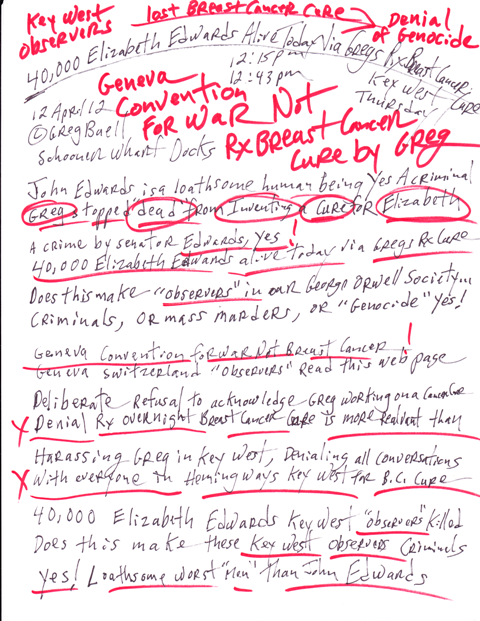 Key West Observers
Lost Breast Cancer Cure
Denial of Genocide
40,000 Elizabeth Edwards Alive Today Via Gregs Rx Breast Cancer Cure
12:15pm
12:43pm
Key West
Thursday
Geneva
Convention
For War Not
Rx Breast Cancer
Cure by Greg
12 April 12
© Greg Buell
Schooner Wharf Docks
John Edwards is a loathsome human being yes A criminal
Greg stopped "dead" from Inventing a Cure for Elizabeth
A crime by senator Edwards, yes!
40,000 Elizabeth Edwards alive today via Gregs Rx Cure
Does this make "observers" in our George Orwell Society...
Criminals, or mass marders, or "Genocide" Yes!
Geneva Convention for War Not Breast Cancer!
Geneva Switzerland "Observers" Read this web page
Deliberate Refusal to acknowledge Greg working on a Cancer Cure
X Denial Rx overnight Breast Cancer Cure is more Realvant than
Harassing Greg in Key West, Denialing all conversations
X With everyone in Hemingways Key West for B.C. Cure
40,000 Elizabeth Edwards Key West "observers" killed
Does this make these Key West Observers Criminals
Yes! Loathsome worst "Men" than John Edwards